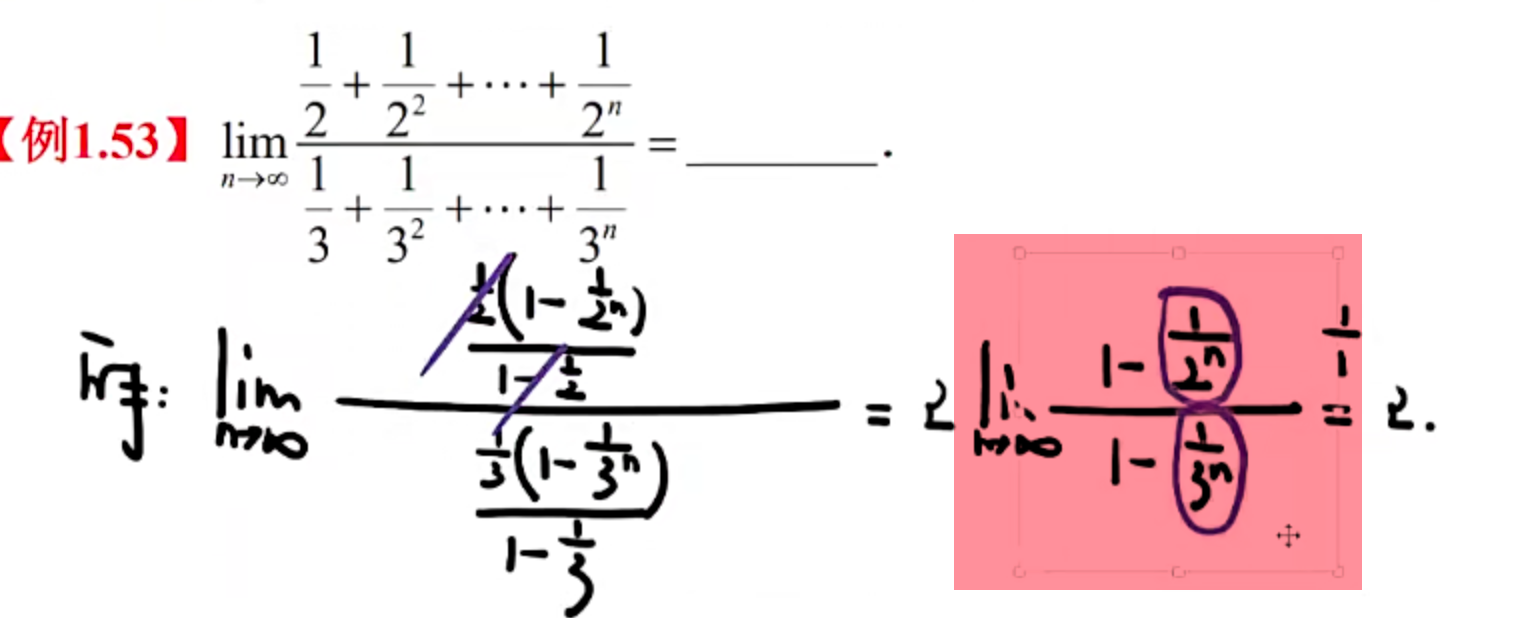 【例1.53】 lim_{n→∞} (1/2 + 1/2² + ⋯ + 1/2ⁿ) / (1/3 + 1/3² + ⋯ + 1/3ⁿ) = ________.
lim_{n→∞} ((1/2(1 - 1/2ⁿ)) / (1 - 1/2)) / ((1/3(1 - 1/3ⁿ)) / (1 - 1/3)) = 2 lim_{n→∞} (1 - 1/2ⁿ) / (1 - 1/3ⁿ) = 2.
1/1